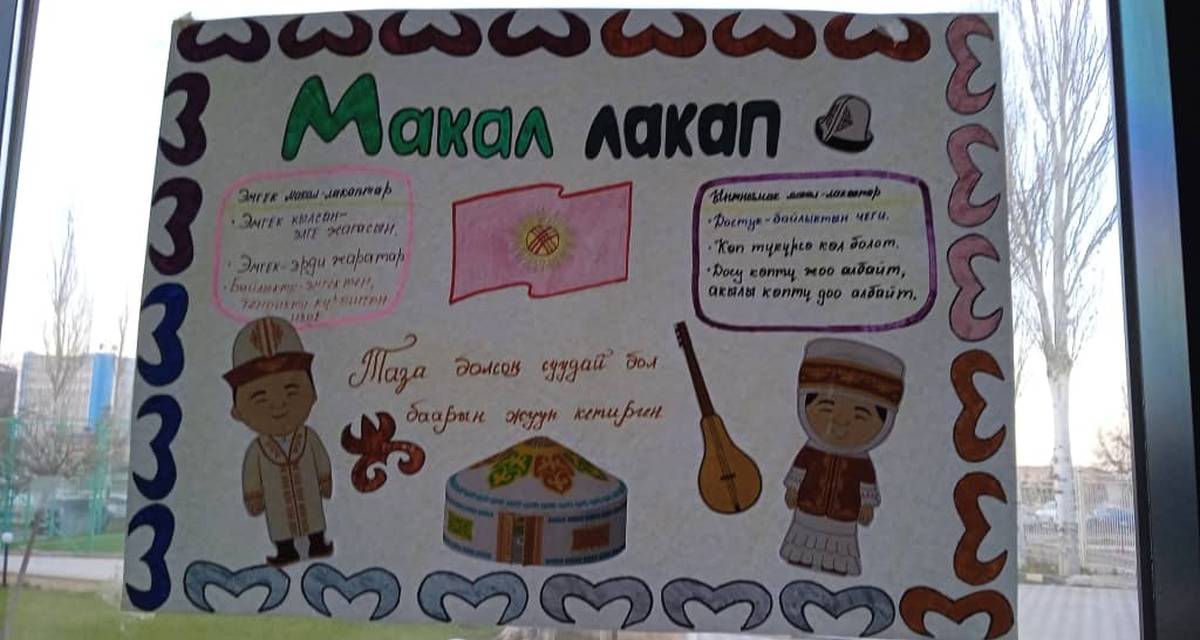 Макал лакап
Эмгек макал-лакаптар
• Эмгек кылсаң-
элге жагасың.
• Эмгек-эрди жаратар
• Байлыктүү эмгектен,
теңдикти күрөштөн
изде
Ынтымак макал-лакаптар
• Достук-байлыктын чеги.
• Көп түкүрсө көл болот.
• Досу көптү жоо албайт,
акылы көптү доо албайт.
Таза болсоң суудай бол
баарын жууп кетирген